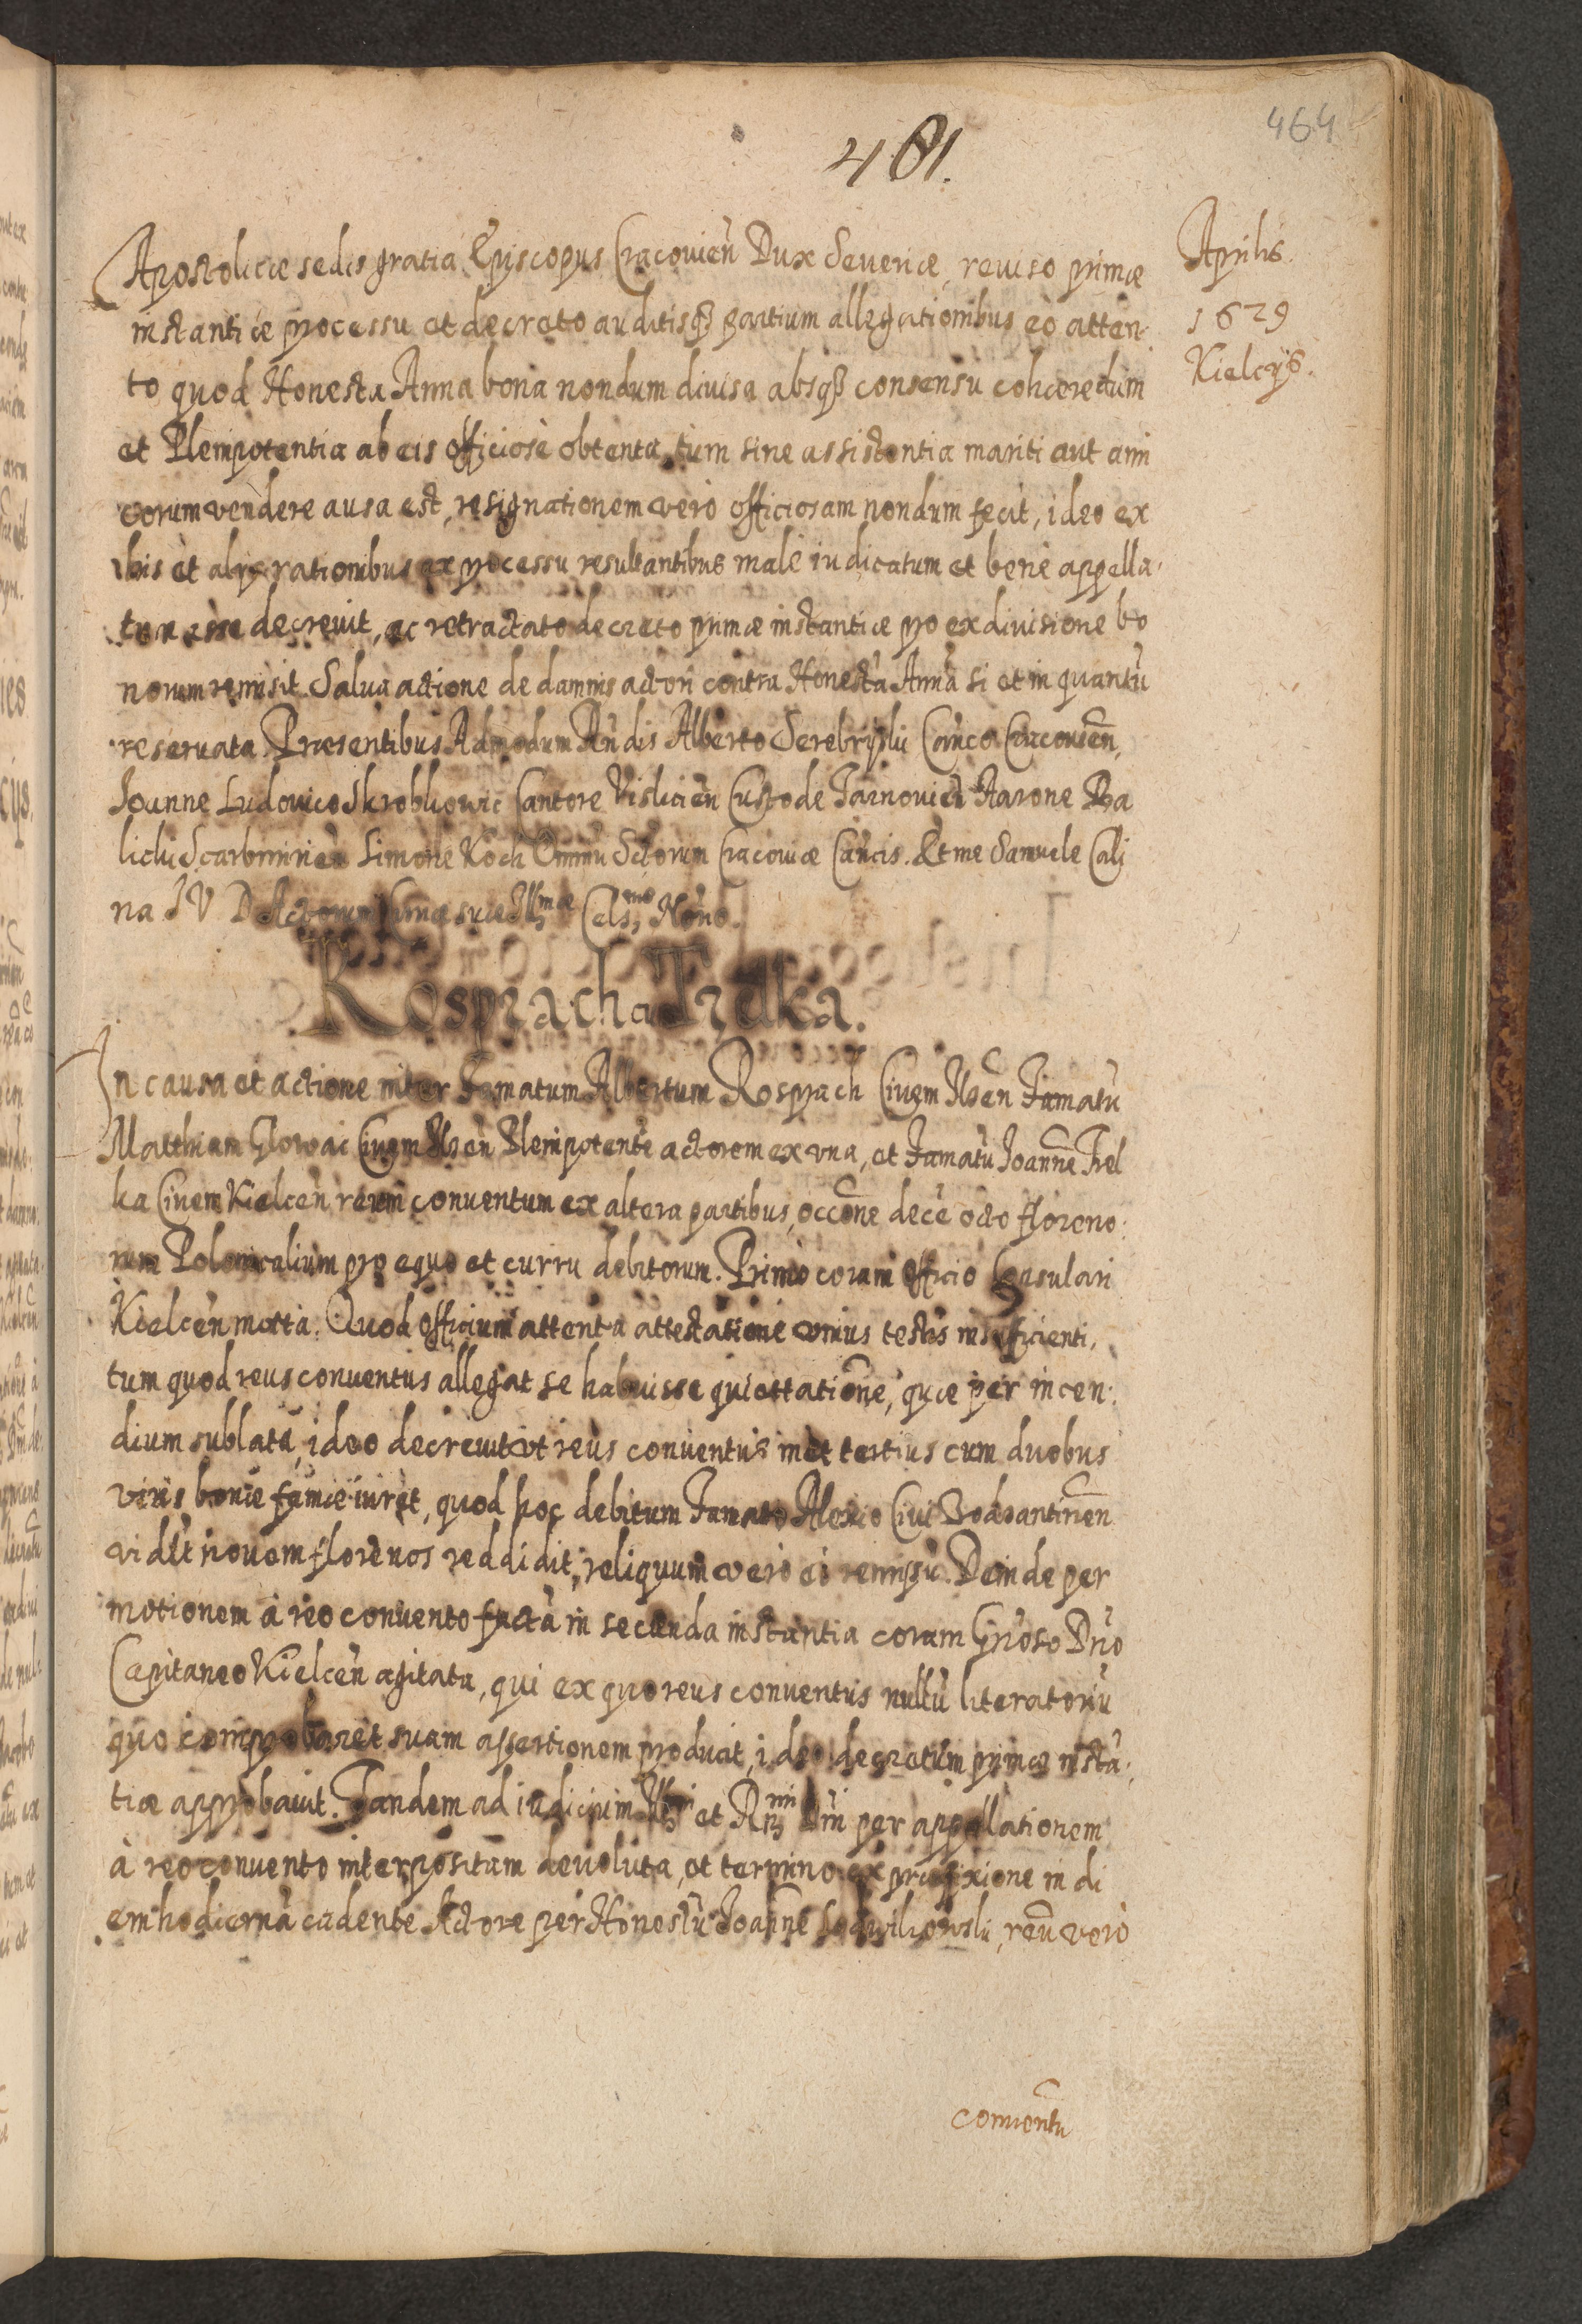 464
481.
Aprilis.
1629
Kielcijs.
Apostolicæ sedis gratia Episcopus Cracovien̄ Dux Severiæ, reviso primæ
instantiæ processu et decreto auditisq3 partium allegationibus eo atten:
to quod Honesta Anna bona nondum divisa absq3 consensu cohæredum
et Plenipotentia ab eis officiosè obtenta, tum sine assistentia mariti aut ami
corum vendere ausa est, resignationem verò officiosam nondum fecit, ideo ex
his et alijs rationibus ex processu resultantibus malè iudicatum et benè appella:
tum esse decrevit, ac retractato decreto primæ instantiæ pro exdivisione bo
norum remisit. Salva actione de damnis actori contra Honestā Annā si et in quantū
reservata. Præsentibus Admodum Rn̄dis Alberto Serebryski Canco Cracovien̄,
Joanne Ludovico Skrobkowic Cantore Vislicien̄ Custode Tarnovien̄ Aarone Ba
licki Scarbimirien̄ Simone Koch Omniū Sctorum Cracoviæ Cancis. Et me Samuele Cali
na J V D Actorum suæ Illmæ Cels, Notrio.
Rosprach a Trelka.
In causa et actione inter Famatum Albertum Rosprach Civem Ilzen̄ Famatū
Matthiam Glowac Civem Ilzen̄ Plenipotentē actorem ex una, et Famatū Joannē Trel
ka Civem Kielcen̄ reum conventum ex altera partibus, occōne decē octo floreno:
rum Polonicalium pro equo et curru debitorum. Primò coram Officio Consulari
Kielcen̄ mota. Quod Officium attenta attestatione unius testis insufficienti,
tum quod reus conventus allegat se habuisse quiettationē, quæ per incen:
dium sublata, ideo decrevit ut reus conventus met tertius cum duobus
viris bonæ famæ iuret, quod hoc debitum Famato Alexio Civi Bodzantinen̄
vidlt novem florenos reddidit, reliquum verò ei remissū. Deinde per
motionem à reo convento factā in secunda instantia coram Gn̄oso Dn̄o
Capitaneo Kielcen̄ agitata, qui ex quo reus conventus nullū literatoriū
quo comprobaret suam assertionem produxit, ideo decretum primæ instā:
tiæ approbavit. Tandem ad iudicium Illmi et Rmi Dn̄i per appellationem
à reo convento interpositam devoluta, et termino ex præfixione in di
em hodiernā cadente Actore per Honestū Joannē, reū verò
conventū